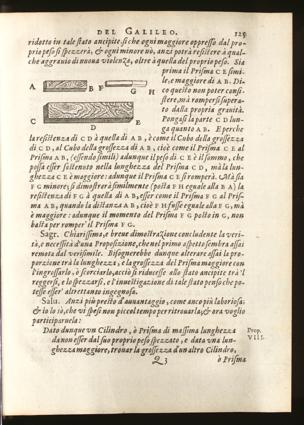 DEL GALILEO. 129
ridotto in tale stato ancipite, sì che ogni maggiore oppresso dal pro-
prio peso si spezzerà, & ogni minore nò, anzi potrà resistere à qual-
che aggravio di nuova violenza, oltre à quella del proprio peso. Sia
prima il Prisma C E simi-
le, e maggiore di A B. Di-
co questo non poter consi-
stere, mà rompersi supera-
to dalla propria gravità.
Pongasi la parte C D lun-
ga quanto A B. E perche
A B F G H
C D E
la resistenza di C D à quella di A B, è come il Cubo della grossezza
di C D, al Cubo della grossezza di A B, cioè come il Prisma C E al
Prisma A B, (essendo simili) adunque il peso di C E è il sommo, che
possa esser sostenuto nella lunghezza del Prisma C D, mà la lun-
ghezza C E è maggiore: adunque il Prisma C E si romperà. Mà sia
F G minore; si dimostrerà similmente (posta F H eguale alla B A) la
resistenza di F G à quella di A B, esser come il Prisma F G al Pris-
ma A B, quando la distanza A B, cioè F H fusse eguale alla F G, mà
è maggiore: adunque il momento del Prisma F G posto in G, non
basta per romper il Prisma F G.
Sagr. Chiarissima, e breve dimostrazione concludente la veri-
tà, e necessità d'una Proposizione, che nel primo aspetto sembra assai
remota dal verisimile. Bisognerebbe dunque alterare assai la pro-
porzione trà la lunghezza, e la grossezza del Prisma maggiore con
l'ingrossarlo, ò scorciarlo, acciò si riducesse allo stato ancipite trà 'l
reggersi, e lo spezzarsi, e l'investigazione di tale stato penso che po-
tesse esser altrettanto ingegnosa.
Salu. Anzi più presto d'avvantaggio, come anco più laboriosa:
& io lo sò, che vi spesi non piccol tempo per ritrovarla, & ora voglio
participarvela:
Dato dunque vn Cilindro, ò Prisma di massima lunghezza
Prop.
VIII.
da non esser dal suo proprio peso spezzato, e data vna lun-
ghezza maggiore, trovar la grossezza d'un altro Cilindro,
Q 3 ò Prisma